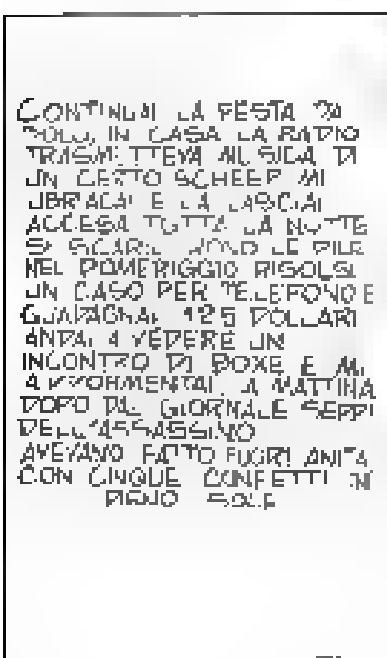 CONTINUAI LA FESTA DA
SOLO, IN CASA LA RADIO
TRASMETTEVA MUSICA DI
UN CERTO SCHEEP MI
UBRIACAI E LA LASCIAI
ACCESA TUTTA LA NOTTE
SI SCARICARONO LE PILE
NEL POMERIGGIO RISOLSI
UN CASO PER TELEFONO E
GUADAGNAI 125 DOLLARI
ANDAI A VEDERE UN
INCONTRO DI BOXE E MI
ADDORMENTAI LA MATTINA
DOPO DAL GIORNALE SEPPI
DELL'ASSASSINO
AVEVANO FATTO FUORI ANITA
CON CINQUE CONFETTI IN
PIENO SOLE